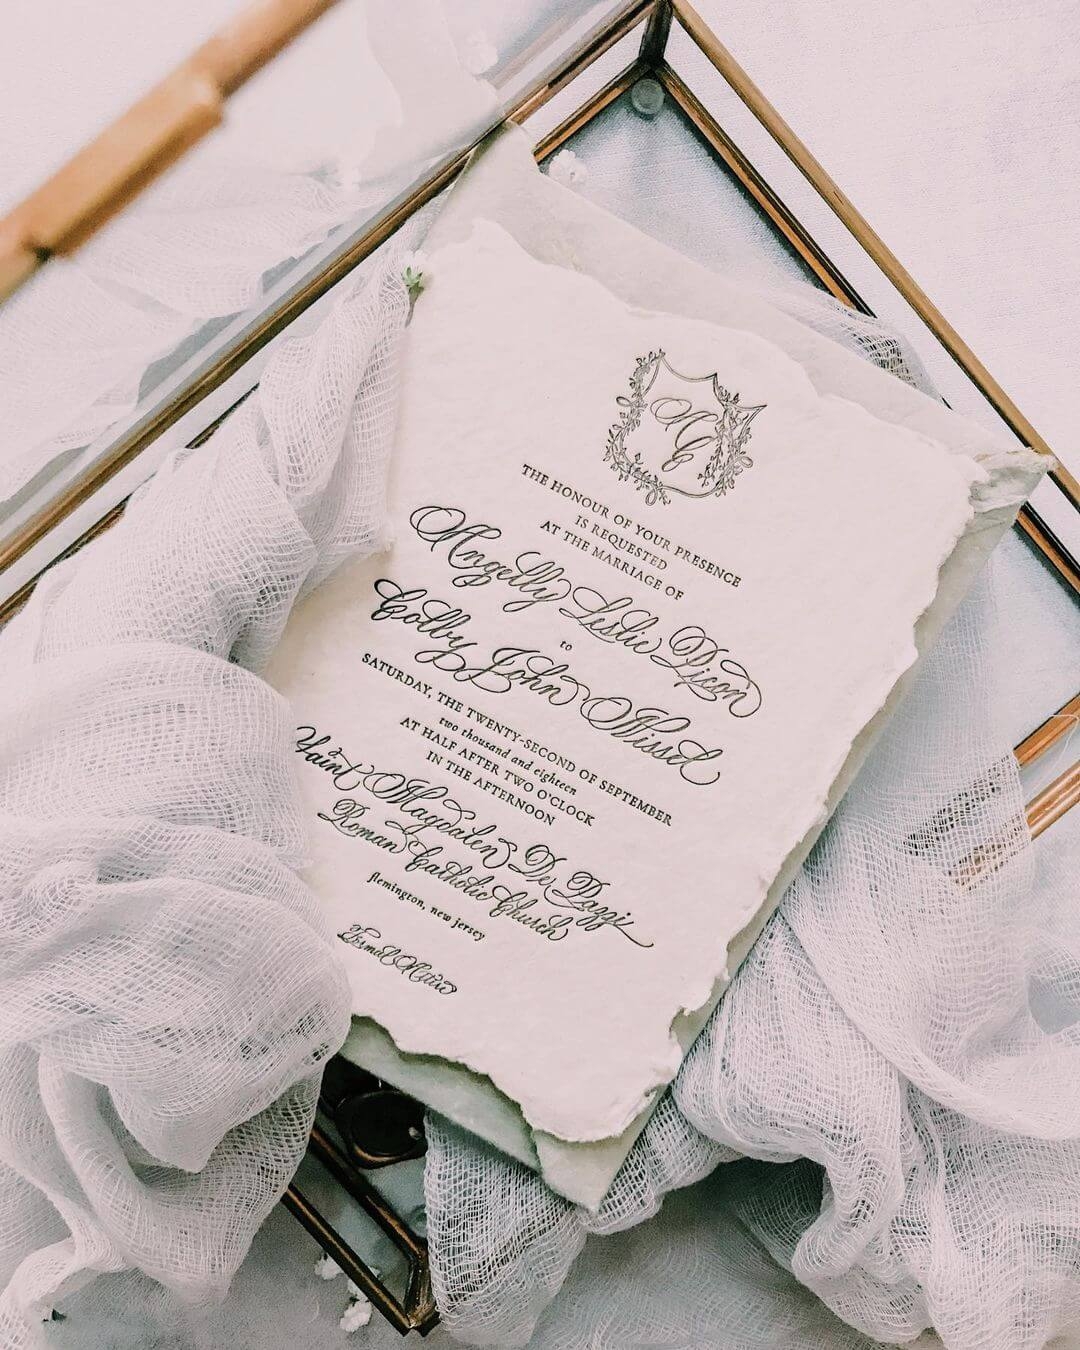 AC
THE HONOUR OF YOUR PRESENCE
IS REQUESTED
AT THE MARRIAGE OF
Angelly Leslie Dixon
to
Colby John Missel
SATURDAY, THE TWENTY-SECOND OF SEPTEMBER
two thousand and eighteen
AT HALF AFTER TWO O'CLOCK
IN THE AFTERNOON
Saint Magdalen De Pazzi
Roman Catholic Church
flemington, new jersey
Formal Attire